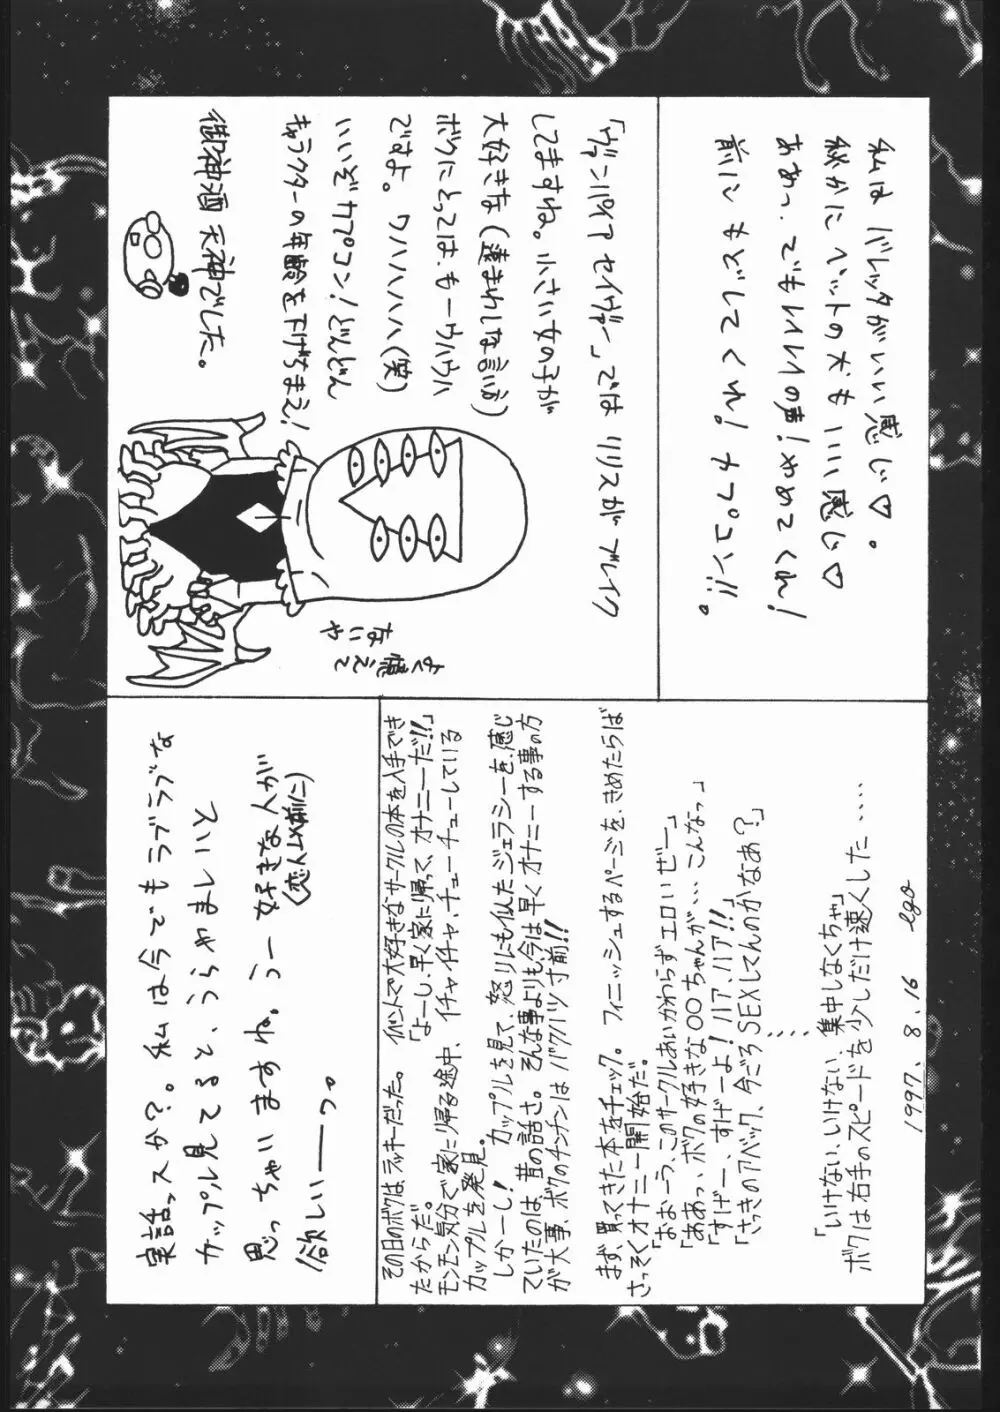 私は バレッタがいい感じ♡。
秘かに ペットの犬も いい感じ♡
前に もどしてくれ!
「ヴァンパイア セイヴァー」では リリスが ブレイク
してますね。小さい女の子が
大好きな(遠まわしな言い方)
ボクにとっては、もーウハウハ
ですよ。ワハハハハ(笑)
いいぞカプコン!どんどん
キャラクターの年齢を下げちまえ!
御神酒 天神でした。
よく憶えて
ないや
その日のボクは、ラッキーだった。 イベントで大好きなサークルの本を入手でき
たからだ。 「よーし、早く家に帰って、オナニーだ!!」
モンモン気分で家に帰る途中、イチャイチャ、チューチューしている
カップルを発見。
しかーし! カップルを見て、怒りにも似たジェラシーを、感じ
ていたのは、昔の話さ。そんな事よりも、今は、早くオナニーする事の方
が大事、ボクのチンチンは バクハツ寸前!!
まず、買ってきた本をチェック。 フィニッシュするページを、きめたらば
さっそくオナニー開始だ。
「おおーう、このサークルあいかわらずエロいぜー」
「ああっ、ボクの好きな〇〇ちゃんが、、、こんなっ」
「すげー、すげーよ!ハア、ハア!!」
「さっきのアベック、今ごろSEXしてんのかなあ?」
「いけない、いけない、集中しなくちゃ」
ボクは右手のスピードを少しだけ速くした・・・・
1997. 8. 16 ego
実話っスか?。私は今でもラブラブな
カップル見てると、うらやましいいと
思っちゃいますね。うー 好きな人が
(恋人以前に)
欲しいーーっ。